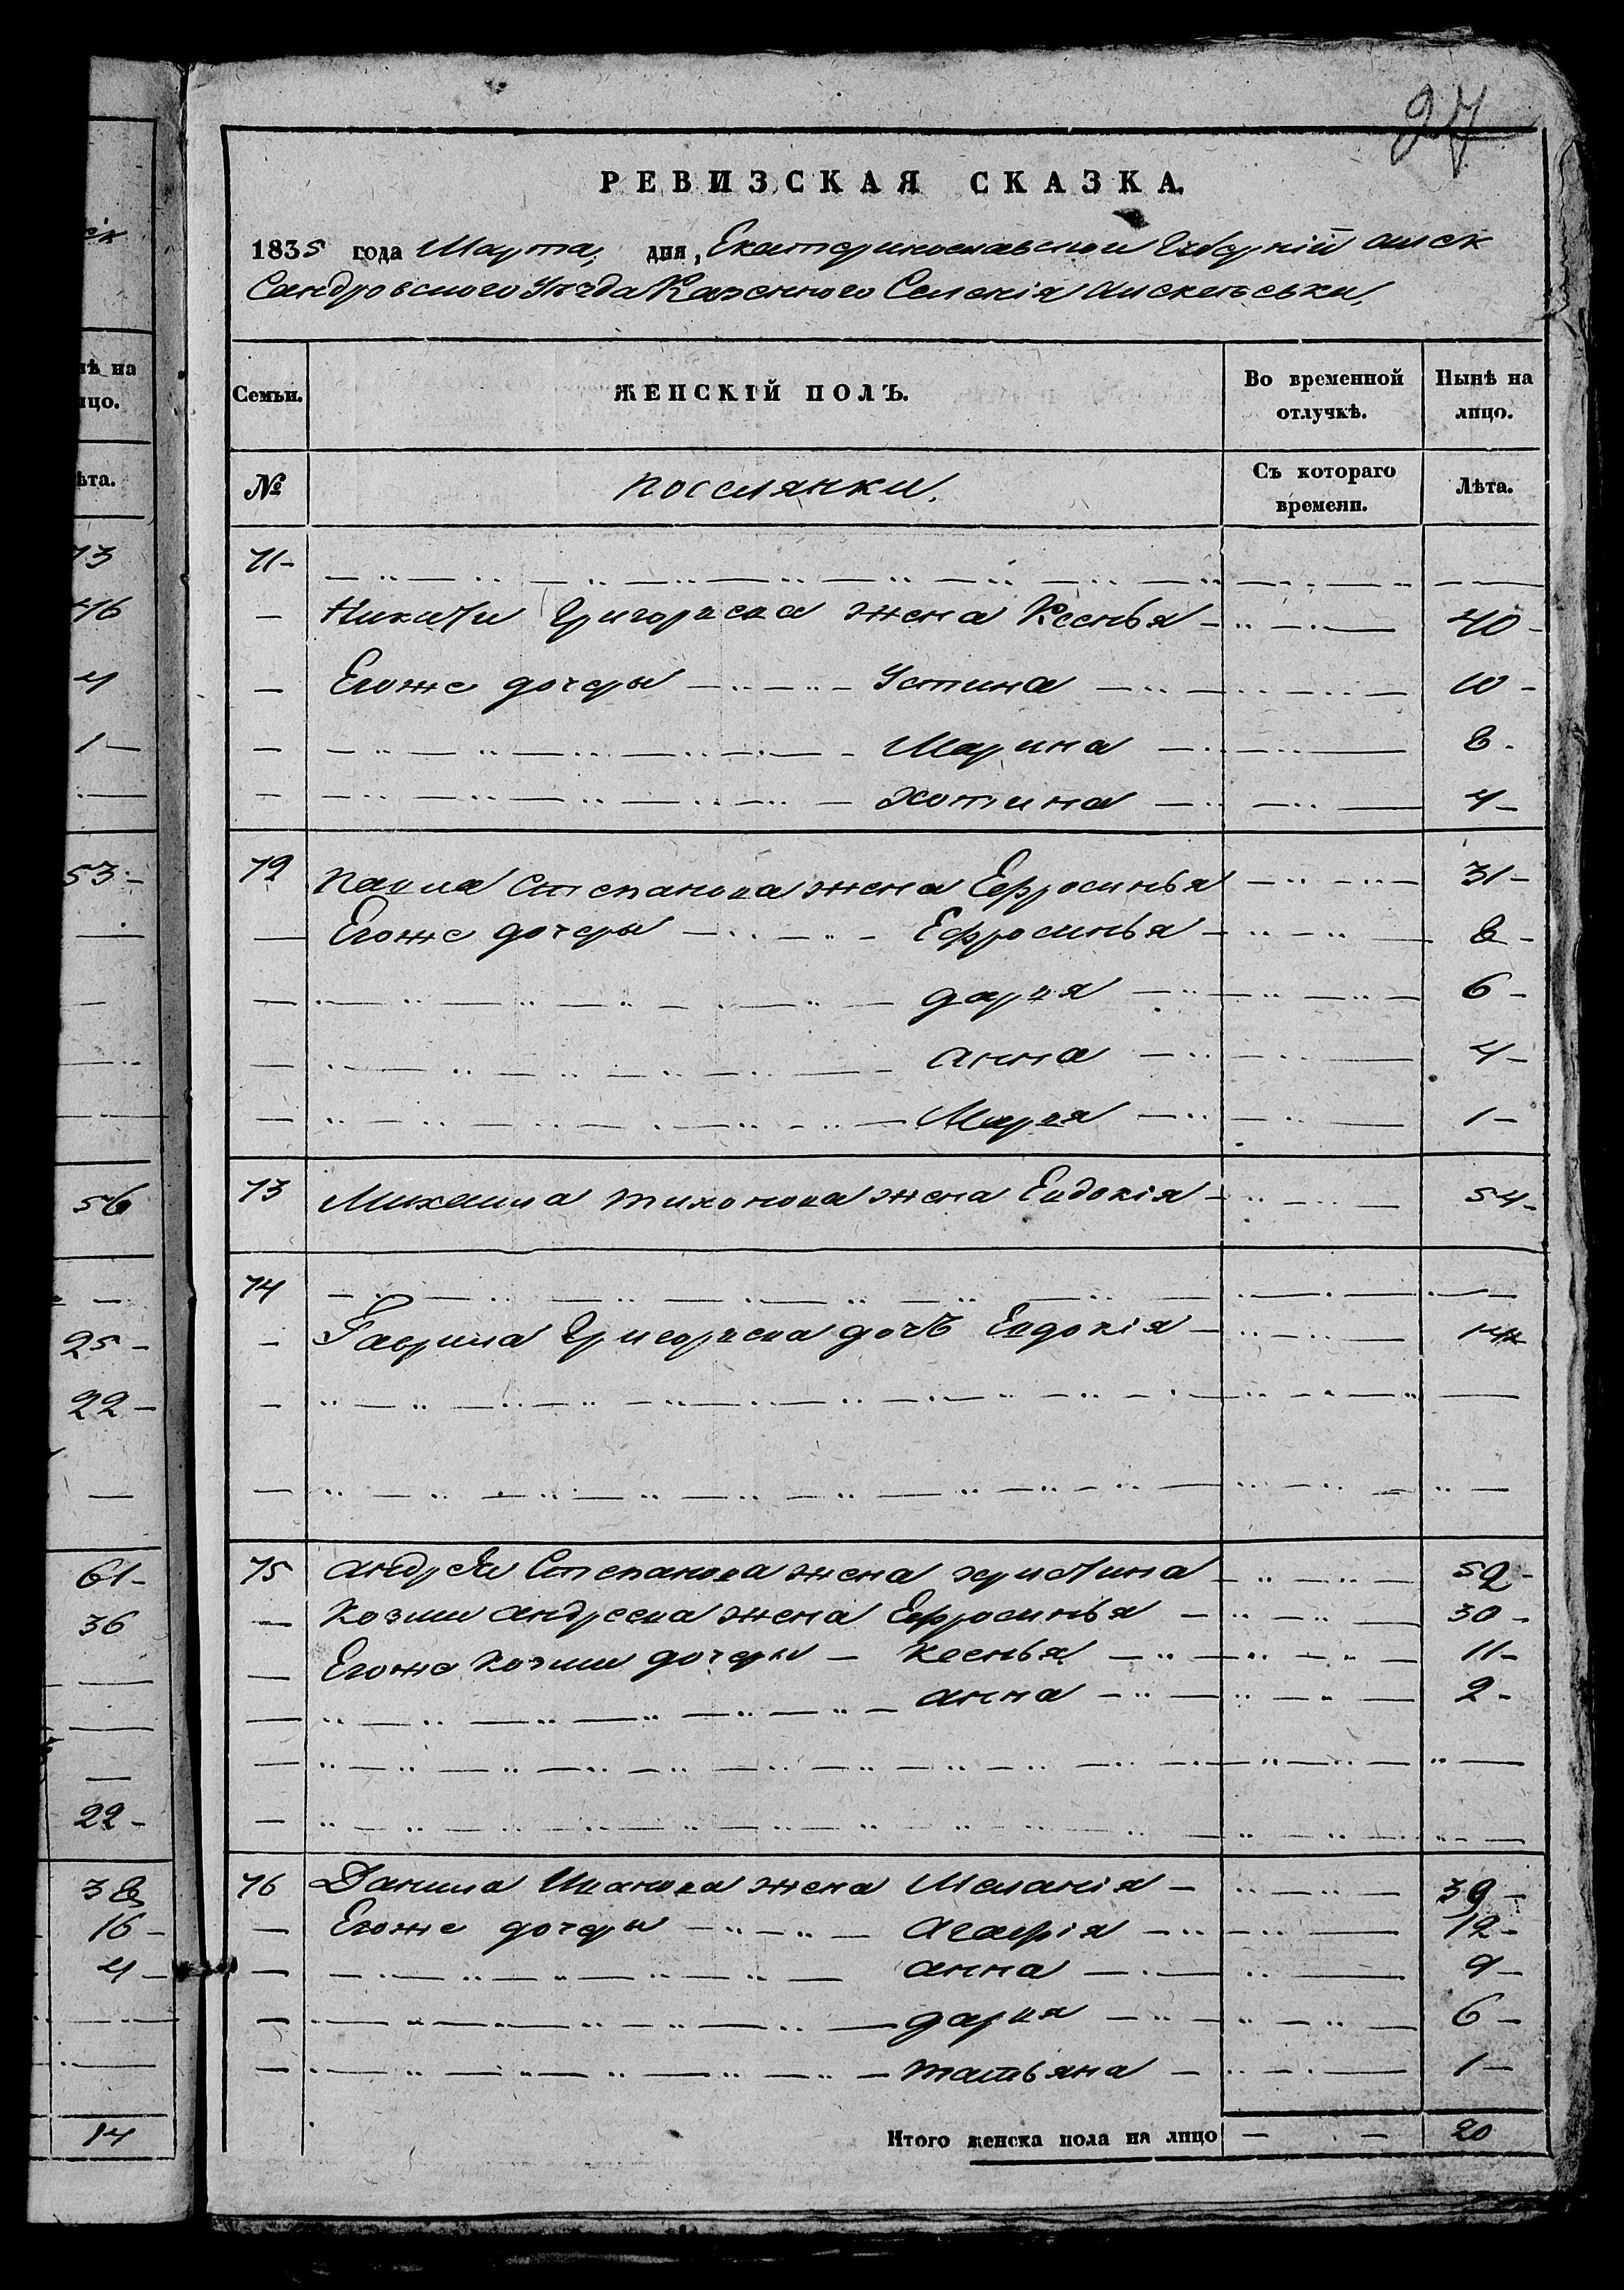 27
РЕВИЗСКАЯ СКАЗКА.
1835 года Марта, дня, Екатеринославской Губернїй алек
Сандровского Уезда Казенного Селенїя алексеевки,
Семьи. ЖЕНСКІЙ ПОЛЪ. Во временной отлучкѣ. Нынѣ на лицо.
№ поселянки. Съ котораго времени. Лѣта.
71-
Никиты Григорьева жена Ксенья 40-
Егоже дочеры Устина 10-
Марина 8-
хотина 4-
72 павла Степанова жена Ефросинья 31-
Егоже дочеры Ефросинья 8-
дарья 6-
анна 4-
Марья 1-
73 Михаила тихонова жена Евдокія 54-
74
Гаврила Григорьева дочь Евдокія 14
75 андрея Степанова жена христина 52-
козми андреева жена Ефросинья 30-
Егоже козми дочеры ксенья 11-
анна 2-
76 Данила Иванова жена Меланія 39-
Егоже дочеры агафія 12-
анна 9-
дарья 6-
татьяна 1-
Итого женска пола на лицо 20
нѣ на
ицо.
ѣта.
13
46
4
1-
53-
56
25-
22-
61-
36
22-
38
16-
4-
14